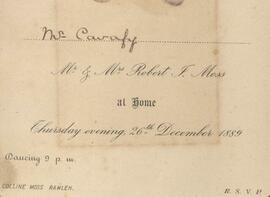 Mr Cavafy
Mr. & Mrs Robert J. Moss
at Home
Thursday evening, 26th December 1889
Dancing 9 p. m.
COLLINE MOSS RAMLEH.
R. S. V. P.